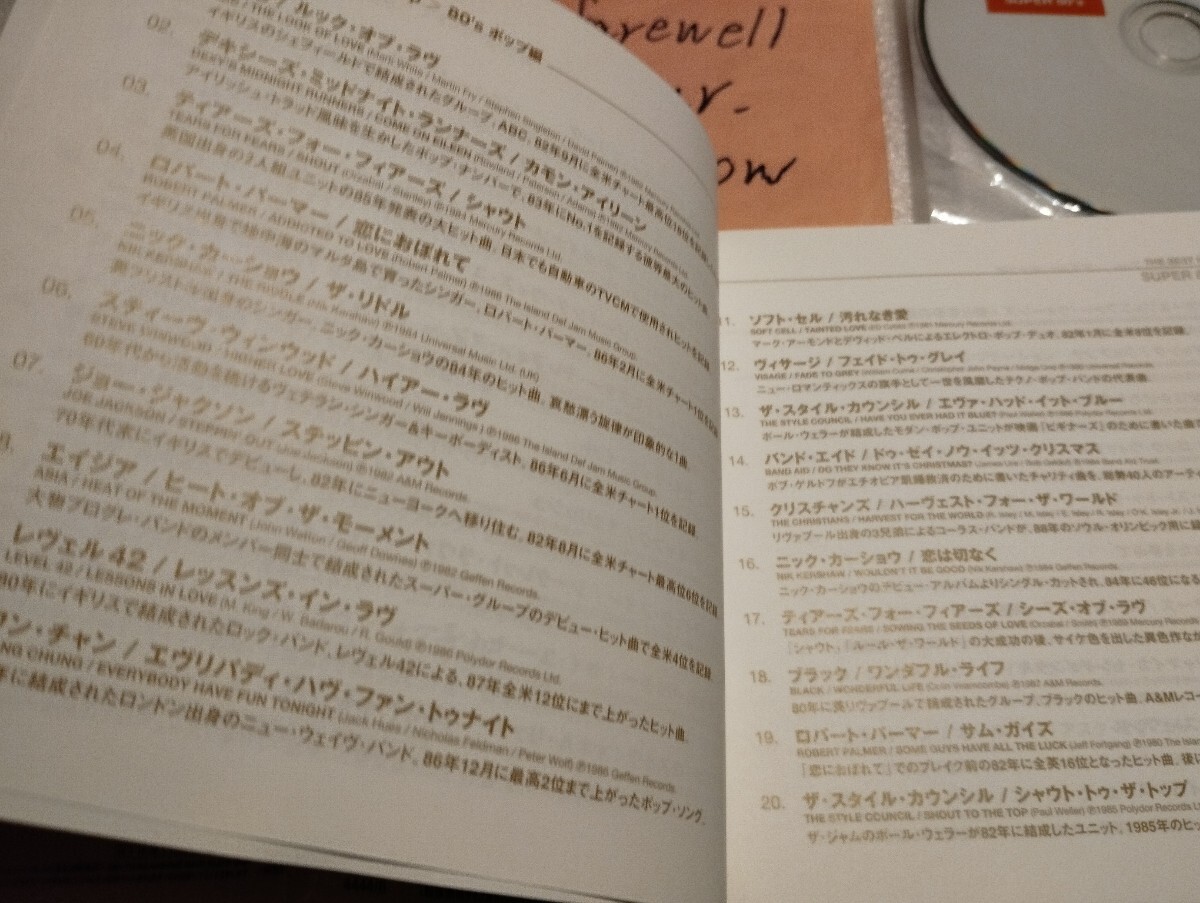 80's ポップ編
ルック・オブ・ラヴ
/ THE LOOK OF LOVE (Mark White / Martin Fry / Stephen Singleton / David Palmer)
イギリスのシェフィールドで結成されたグループ、ABC。82年9月に全米チャート最高位18位を記録
02.
デキシーズ・ミッドナイト・ランナーズ / カモン・アイリーン
DEXY'S MIDNIGHT RUNNERS / COME ON EILEEN
アイリッシュ・トラッド風味を生かしたポップ・ナンバーで、83年にNo.1を記録する彼等最大のヒット曲。
03.
ティアーズ・フォー・フィアーズ / シャウト
TEARS FOR FEARS / SHOUT (Orzabal / Stanley) ℗1984 Mercury Records Ltd.
英国出身の2人組ユニットの85年発表の大ヒット曲。日本でも自動車のTVCMで使用されヒットを記録
04.
ロバート・パーマー / 恋におぼれて
ROBERT PALMER / ADDICTED TO LOVE (Robert Palmer) ℗1985 The Island Def Jam Music Group.
イギリス出身で地中海のマルタ島で育ったシンガー、ロバート・パーマー。86年2月に全米チャート1位を記録
05.
ニック・カーショウ / ザ・リドル
NIK KERSHAW / THE RIDDLE (Nik Kershaw) ℗1984 Universal Music Ltd. (UK)
英ブリストル出身のシンガー、ニック・カーショウの84年のヒット曲。哀愁漂う旋律が印象的な1曲。
06.
スティーヴ・ウィンウッド / ハイアー・ラヴ
STEVE WINWOOD / HIGHER LOVE (Steve Winwood / Will Jennings) ℗1986 The Island Def Jam Music Group.
60年代から活動を続けるヴェテラン・シンガー&キーボーディスト。86年6月に全米チャート1位を記録。
07.
ジョー・ジャクソン / ステッピン・アウト
JOE JACKSON / STEPPIN' OUT (Joe Jackson) ℗1982 A&M Records.
70年代末にイギリスでデビューし、82年にニューヨークへ移り住む。82年8月に全米チャート最高位6位を記録
8.
エイジア / ヒート・オブ・ザ・モーメント
ASIA / HEAT OF THE MOMENT (John Wetton / Geoff Downes) ℗1982 Geffen Records.
大物プログレ・バンドのメンバー同士で結成されたスーパー・グループのデビュー・ヒット曲で全米4位を記録
レヴェル42 / レッスンズ・イン・ラヴ
LEVEL 42 / LESSONS IN LOVE (M. King / W. Badarou / R. Gould) ℗1986 Polydor Records Ltd.
80年にイギリスで結成されたロック・バンド、レヴェル42による、87年全米12位にまで上がったヒット曲。
ワン・チャン / エヴリバディ・ハヴ・ファン・トゥナイト
NG CHUNG / EVERYBODY HAVE FUN TONIGHT (Jack Hues / Nicholas Feldman / Peter Wolf) ℗1986 Geffen Records.
年に結成されたロンドン出身のニュー・ウェイヴ・バンド。86年12月に最高2位まで上がったポップ・ソング。
farewell
r.
ow
THE BEST
SUPER
11. ソフト・セル / 汚れなき愛
SOFT CELL / TAINTED LOVE ℗1981 Mercury Records Ltd.
マーク・アーモンドとデヴィッド・ベルによるエレクトロ・ポップ・デュオ。82年1月に全米8位を記録。
12. ヴィサージ / フェイド・トゥ・グレイ
VISAGE / FADE TO GREY
ニュー・ロマンティックスの旗手として一世を風靡したテクノ・ポップ・バンドの代表曲。
13. ザ・スタイル・カウンシル / エヴァ・ハッド・イット・ブルー
THE STYLE COUNCIL / HAVE YOU EVER HAD IT BLUE? (Paul Weller) ℗1986 Polydor Records Ltd.
ポール・ウェラーが結成したモダン・ポップ・ユニットが映画「ビギナーズ」のために書いた曲で
14. バンド・エイド / ドゥ・ゼイ・ノウ・イッツ・クリスマス
BAND AID / DO THEY KNOW IT'S CHRISTMAS?
ボブ・ゲルドフがエチオピア飢餓救済のために書いたチャリティ曲を、総勢40人のアーティ
15. クリスチャンズ / ハーヴェスト・フォー・ザ・ワールド
THE CHRISTIANS / HARVEST FOR THE WORLD
リヴァプール出身の3兄弟によるコーラス・バンドが、88年のソウル・オリンピック用に
16. ニック・カーショウ / 恋は切なく
NIK KERSHAW / WOULDN'T IT BE GOOD (Nik Kershaw) ℗1984
ニック・カーショウのデビュー・アルバムよりシングル・カットされ、84年に46位になる
17. ティアーズ・フォー・フィアーズ / シーズ・オブ・ラヴ
TEARS FOR FEARS / SOWING THE SEEDS OF LOVE (Orzabal / Smith) ℗1989 Mercury Record
「シャウト」「ルール・ザ・ワールド」の大成功の後、サイケ色を出した異色作な
18. ブラック / ワンダフル・ライフ
BLACK / WONDERFUL LIFE ℗1987 A&M Records.
80年に英リヴァプールで結成されたグループ、ブラックのヒット曲。A&Mレコー
19. ロバート・パーマー / サム・ガイズ
ROBERT PALMER / SOME GUYS HAVE ALL THE LUCK (Jeff Fortgang) ℗1980 The Island
「恋におぼれて」でのブレイク前の82年に全英16位となったヒット曲。後に
20. ザ・スタイル・カウンシル / シャウト・トゥ・ザ・トップ
THE STYLE COUNCIL / SHOUT TO THE TOP (Paul Weller) ℗1985 Polydor Records
ザ・ジャムのポール・ウェラーが82年に結成したユニット。1985年のヒッ